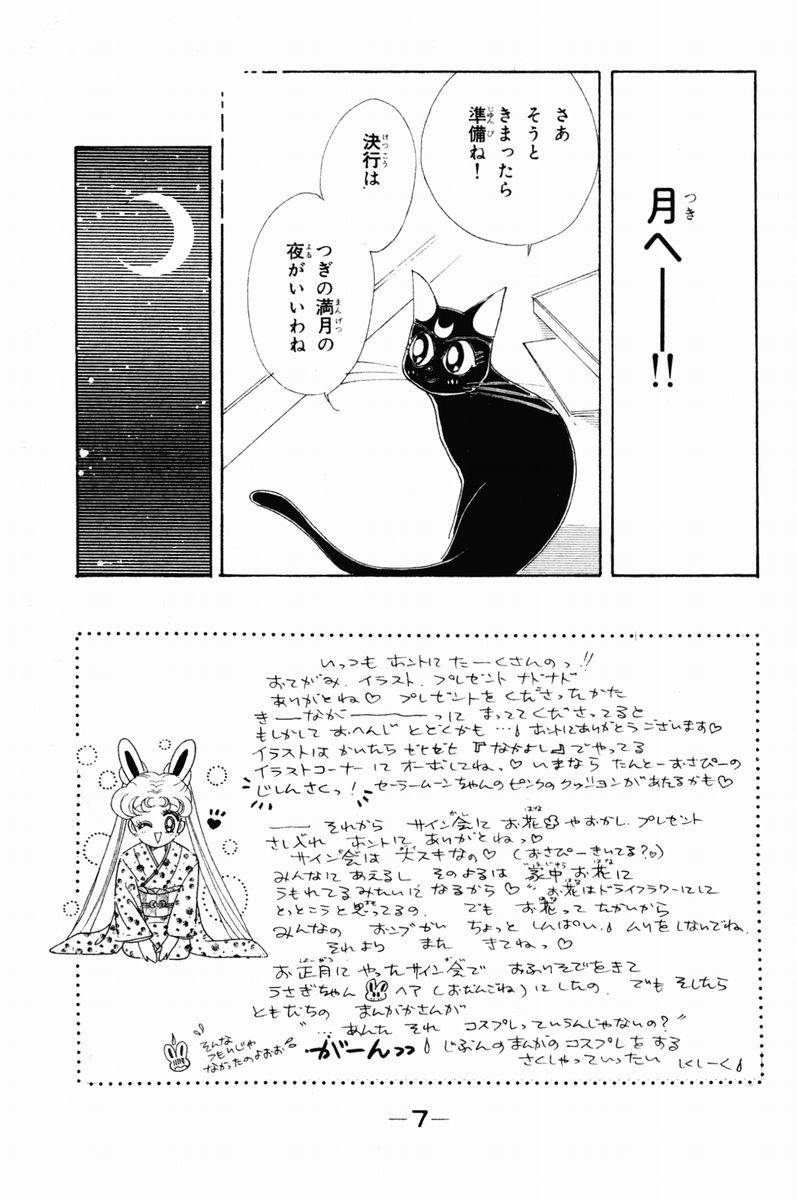 月へ――!!
さあ
そうと
きまったら
準備ね!
決行は
つぎの満月の
夜がいいわね
いっつも ホントに たーくさんのっ!!
おてがみ、イラスト、プレゼント ナドナド
ありがとね♡ プレゼントをくださったかた
きーながーーーっに まっててくださってると
もしかして おへんじ とどくかも…♪ ホントにありがとうございます♡
イラストは かいたら ゼヒゼヒ『なかよし』でやってる
イラストコーナーに オーボしてねっ♡ いまなら たんとーおさぴーの
じしんさくっ! セーラームーンちゃんのピンクのクッションがあたるかも♡
―― それから サイン会に お花やおかし、プレゼント
さしいれ ホントに、ありがとねっ♡
サイン会は 大スキなの♡ (おさぴーきいてる?♡)
みんなにあえるし そのよるは 家中 お花に
うもれてるみたいに なるから♡ お花はドライフラワーにして
とっとこうと思ってるの。 でも お花って たかいから
みんなの おこづかい ちょっと しんぱい。♪ ムリをしないでね、
それより また きてねっ♡
お正月に やったサイン会で おふりそでをきて
うさぎちゃん ヘア(おだんごね)にしたの、 でも そしたら
ともだちの まんがかさんが
"…あんた それ コスプレっていうんじゃないの?"
がーんっっ♪ じぶんのまんがのコスプレをする
さくしゃっていったい しくしーく♪
そんな
つもりじゃ
なかったのよおお
―7―